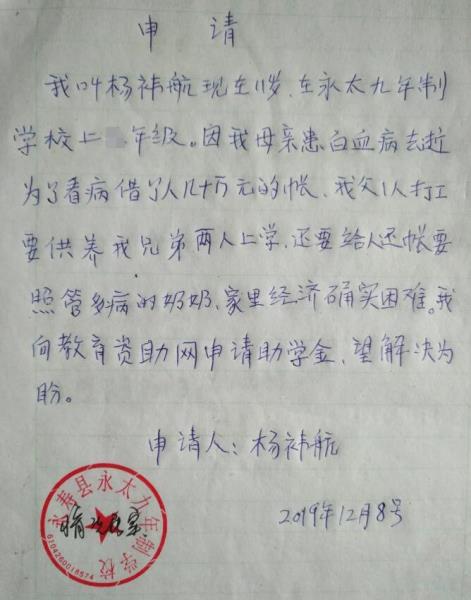 申 请
我叫杨祎航现在11岁、在永太九年制
学校上 年级。因我母亲患白血病去逝
为了看病借了人几十万元的帐、我父1人打工
要供养我兄弟两人上学,还要给人还帐要
照管多病的奶奶、家里经济确实困难。我
向教育资助网申请助学金、望解决为
盼。
申请人:杨祎航
2019年12月8号
永寿县永太九年制学校
情况属实
6104260018574